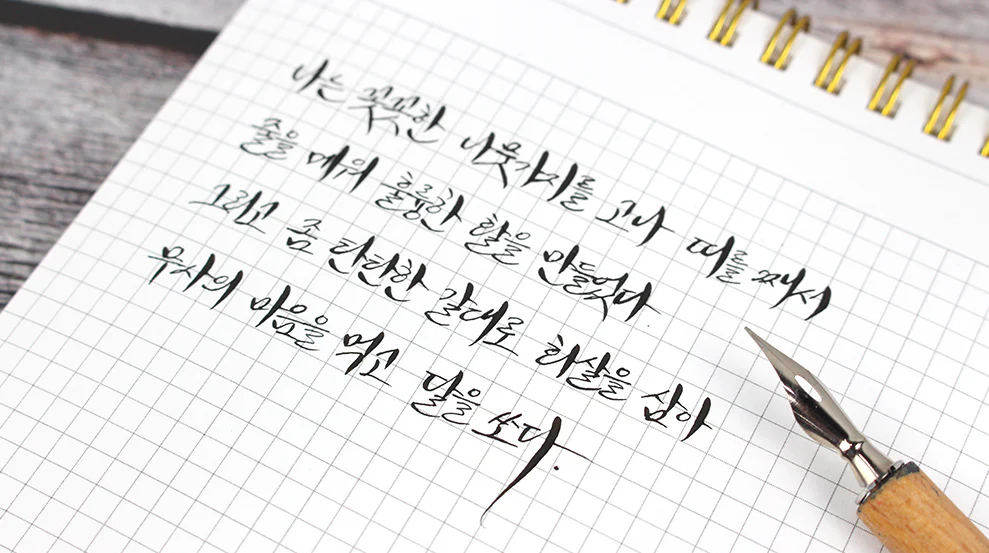 나는 꼿꼿한 나뭇가지를 고나 띠를 째서
줄을 메워 훌륭한 활을 만들었다
그리고 좀 탄탄한 갈대로 화살을 삼아
무사의 마음을 먹고 달을 쏘다.